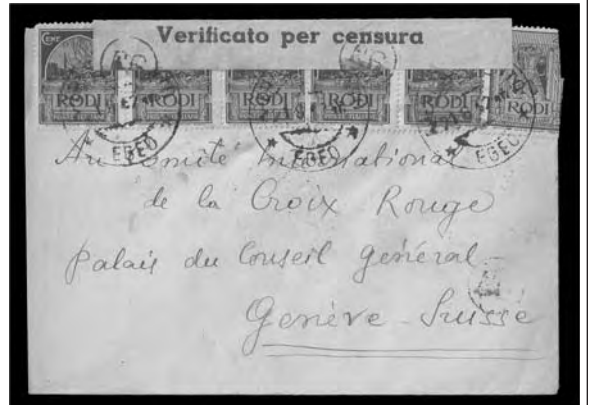 Verificato per censura
CENT
RODI RODI RODI RODI RODI RODI
EGEO EGEO EGEO
Au Comité International
de la Croix Rouge
Palais du Conseil général
Genève - Suisse